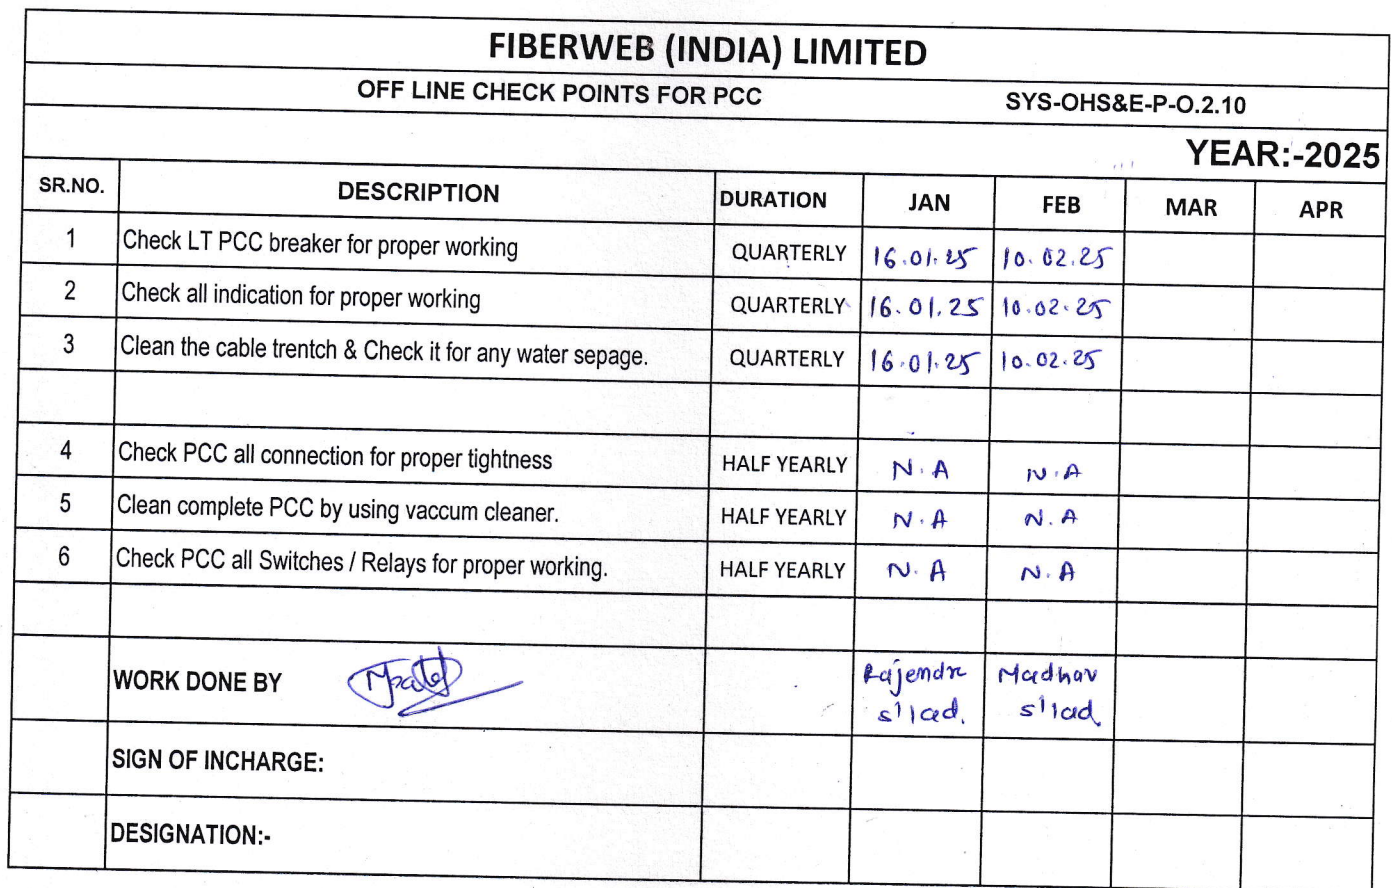 FIBERWEB (INDIA) LIMITED
OFF LINE CHECK POINTS FOR PCC SYS-OHS&E-P-O.2.10
YEAR:-2025
SR.NO. DESCRIPTION DURATION JAN FEB MAR APR
1 Check LT PCC breaker for proper working QUARTERLY 16.01.25 10.02.25
2 Check all indication for proper working QUARTERLY 16.01.25 10.02.25
3 Clean the cable trentch & Check it for any water sepage. QUARTERLY 16.01.25 10.02.25
4 Check PCC all connection for proper tightness HALF YEARLY N.A N.A
5 Clean complete PCC by using vaccum cleaner. HALF YEARLY N.A N.A
6 Check PCC all Switches / Relays for proper working. HALF YEARLY N.A N.A
WORK DONE BY Rajendra Madhav
SIGN OF INCHARGE:
DESIGNATION:-